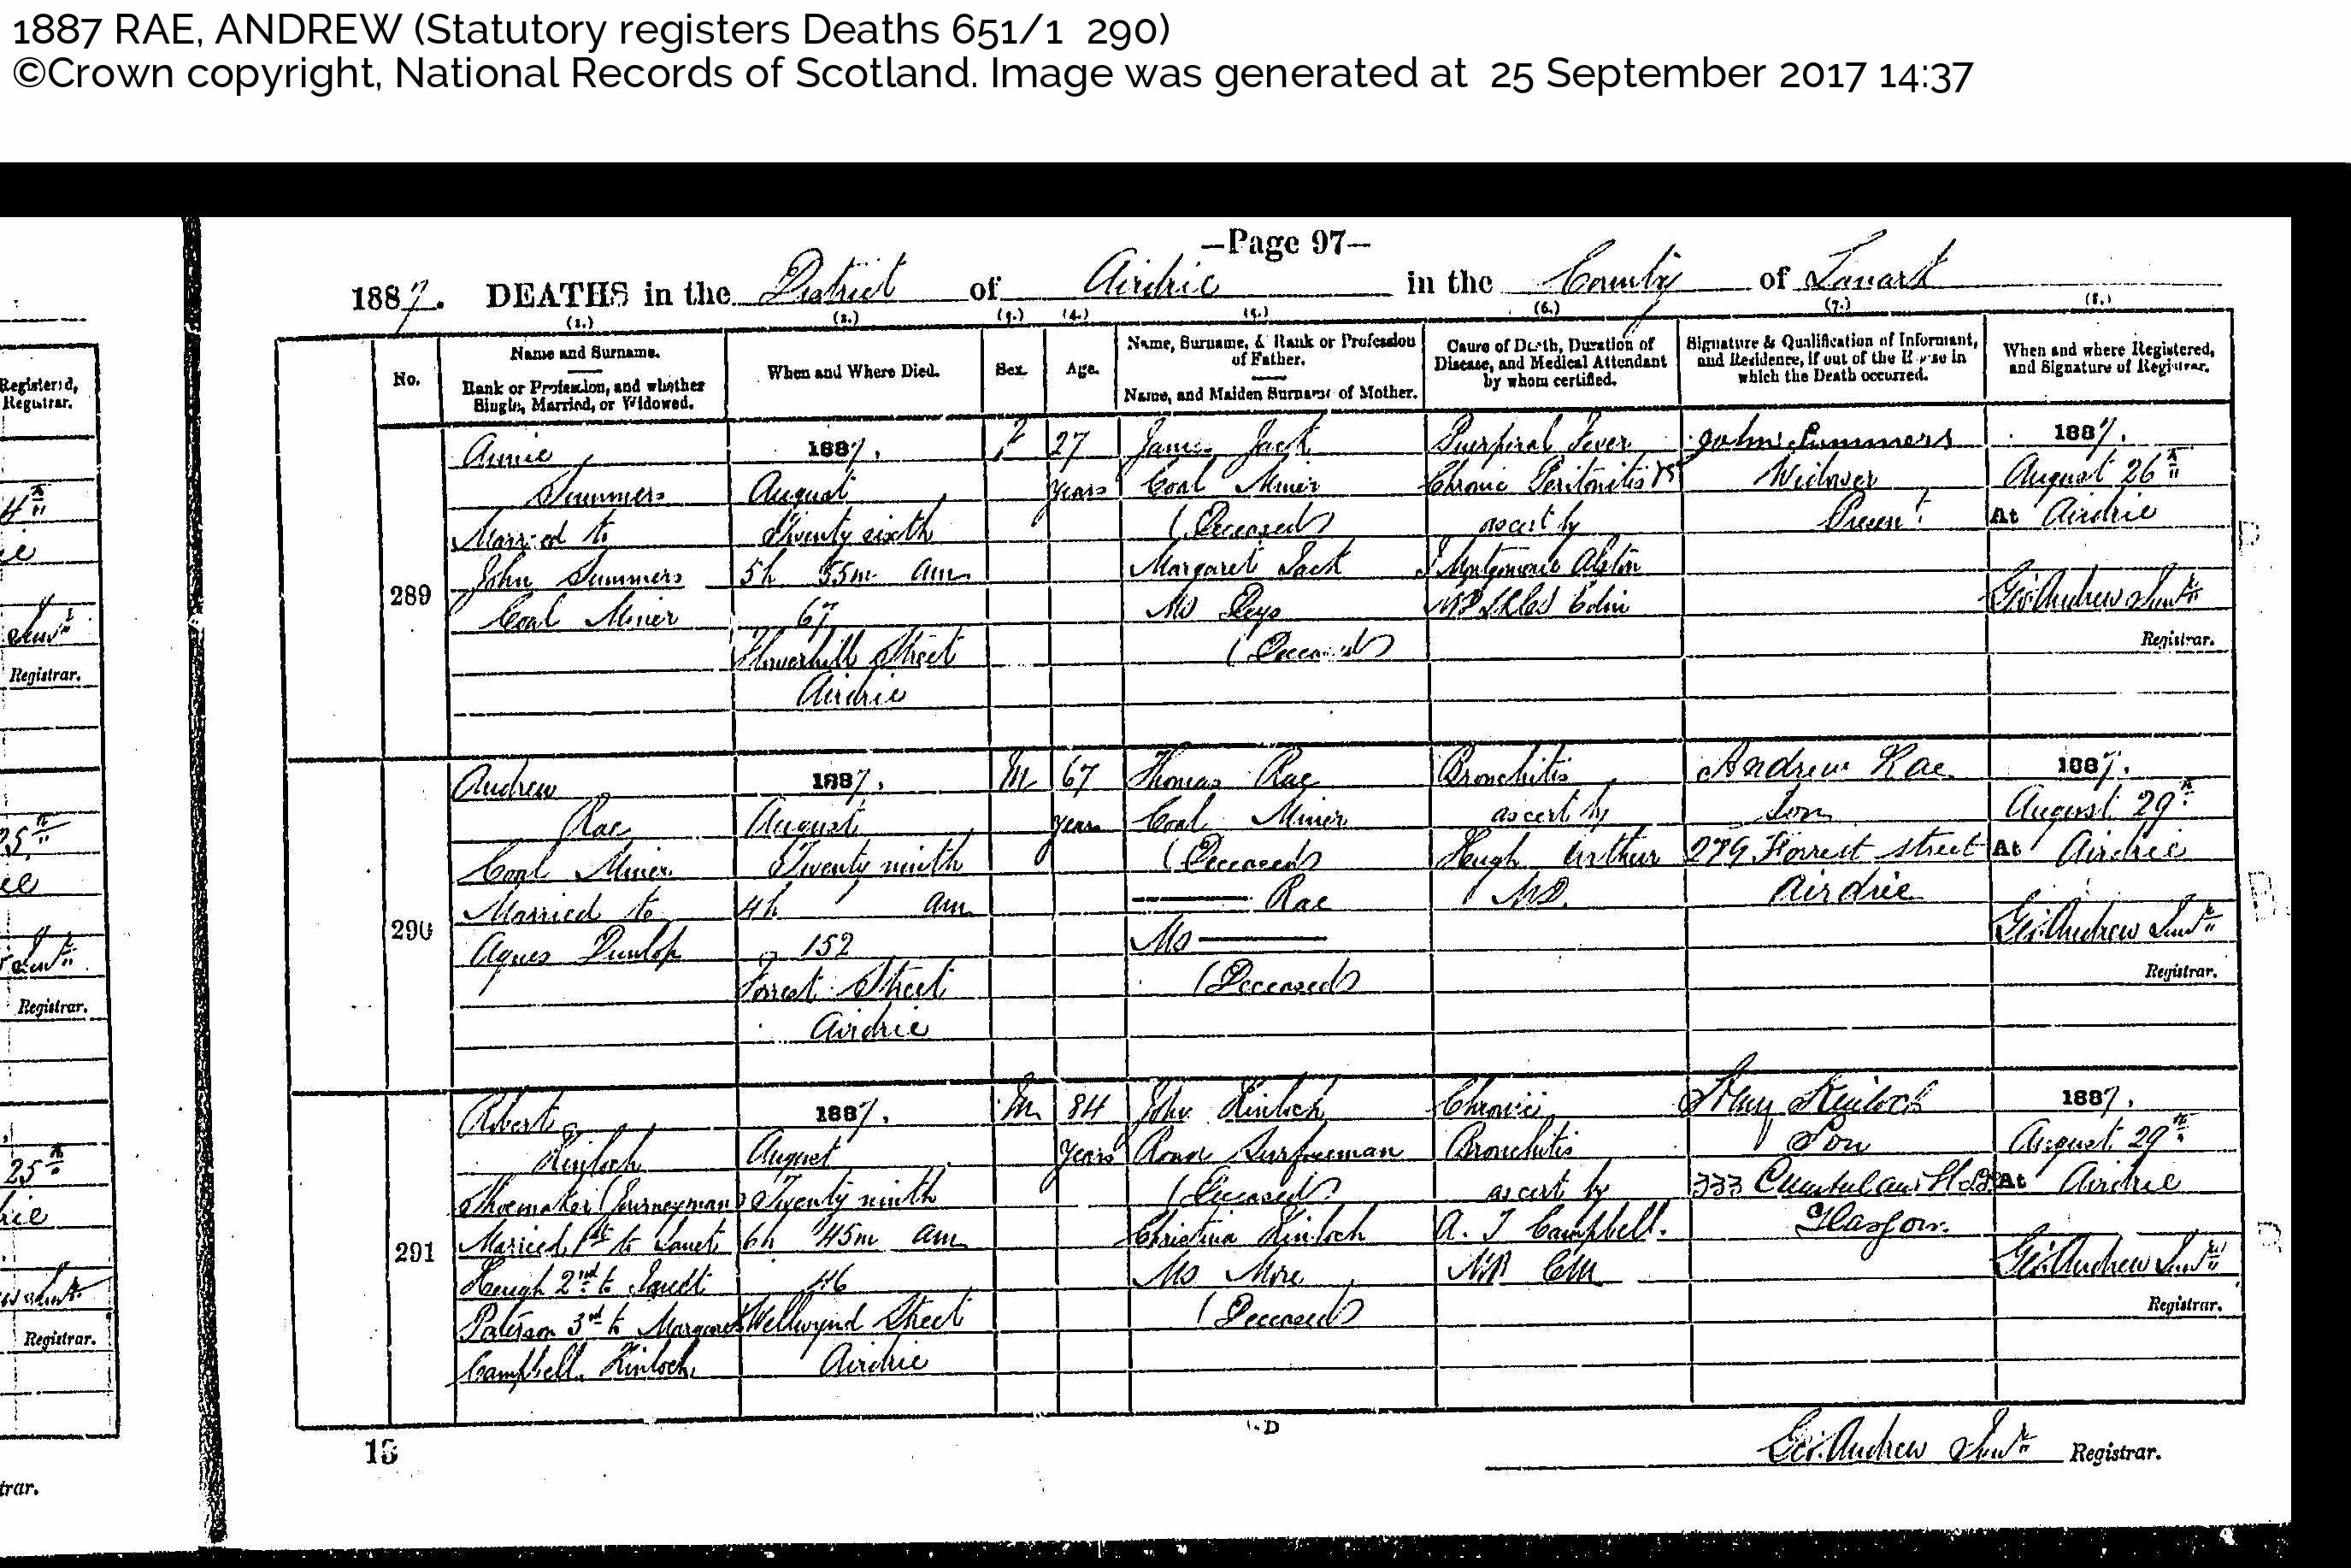 1887 RAE, ANDREW (Statutory registers Deaths 651/1 290)
©Crown copyright, National Records of Scotland. Image was generated at 25 September 2017 14:37
—Page 97—
1887. DEATHS in the District of Airdrie in the County of Lanark
(1.) (2.) (3.) (4.) (5.) (6.) (7.) (8.)
No.
Name and Surname.
Rank or Profession, and whether
Single, Married, or Widowed.
When and Where Died.
Sex.
Age.
Name, Surname, & Rank or Profession
of Father.
Name, and Maiden Surname of Mother.
Cause of Death, Duration of
Disease, and Medical Attendant
by whom certified.
Signature & Qualification of Informant,
and Residence, if out of the House in
which the Death occurred.
When and where Registered,
and Signature of Registrar.
289
Annie
Summers
Married to
John Summers
Coal Miner
1887.
August
Twenty sixth
5h 55m am
67
Flowerhill Street
Airdrie
F
27
years
James Jack
Coal Miner
(Deceased)
Margaret Jack
MS
(Deceased)
Puerperal Fever
Chronic Peritonitis
as cert by
Montgomerie Alston
Edin
John Summers
Widower
Present
1887.
August 26th
At Airdrie
Geo. Andrew
Registrar.
290
Andrew
Rae
Coal Miner
Married to
Agnes Dunlop
1887.
August
Twenty ninth
4h am
152
Forrest Street
Airdrie
M
67
years
Thomas Rae
Coal Miner
(Deceased)
——— Rae
MS ———
(Deceased)
Bronchitis
as cert by
Hugh Arthur
MD.
Andrew Rae
Son
279 Forrest street
Airdrie
1887.
August 29th
At Airdrie
Geo. Andrew
Registrar.
291
Robert
Kinloch
Shoemaker (Journeyman)
Married 1st to Janet
Heugh 2nd to
Paterson 3rd to Margaret
Campbell Kinloch
1887.
August
Twenty ninth
6h 45m am
46
Wellwynd Street
Airdrie
M
84
years
John Kinloch
Road Surfaceman
(Deceased)
Christina Kinloch
MS More
(Deceased)
Chronic
Bronchitis
as cert by
A. T Campbell.
MB CM
Kinloch
Son
333
Glasgow.
1887.
August 29th
At Airdrie
Geo. Andrew
Registrar.
13
Geo. Andrew
Registrar.